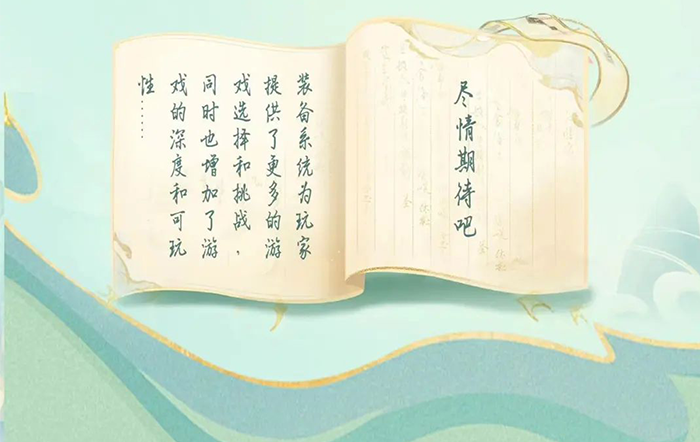 尽情期待吧
装备系统为玩家
提供了更多的游
戏选择和挑战，
同时也增加了游
戏的深度和可玩
性……